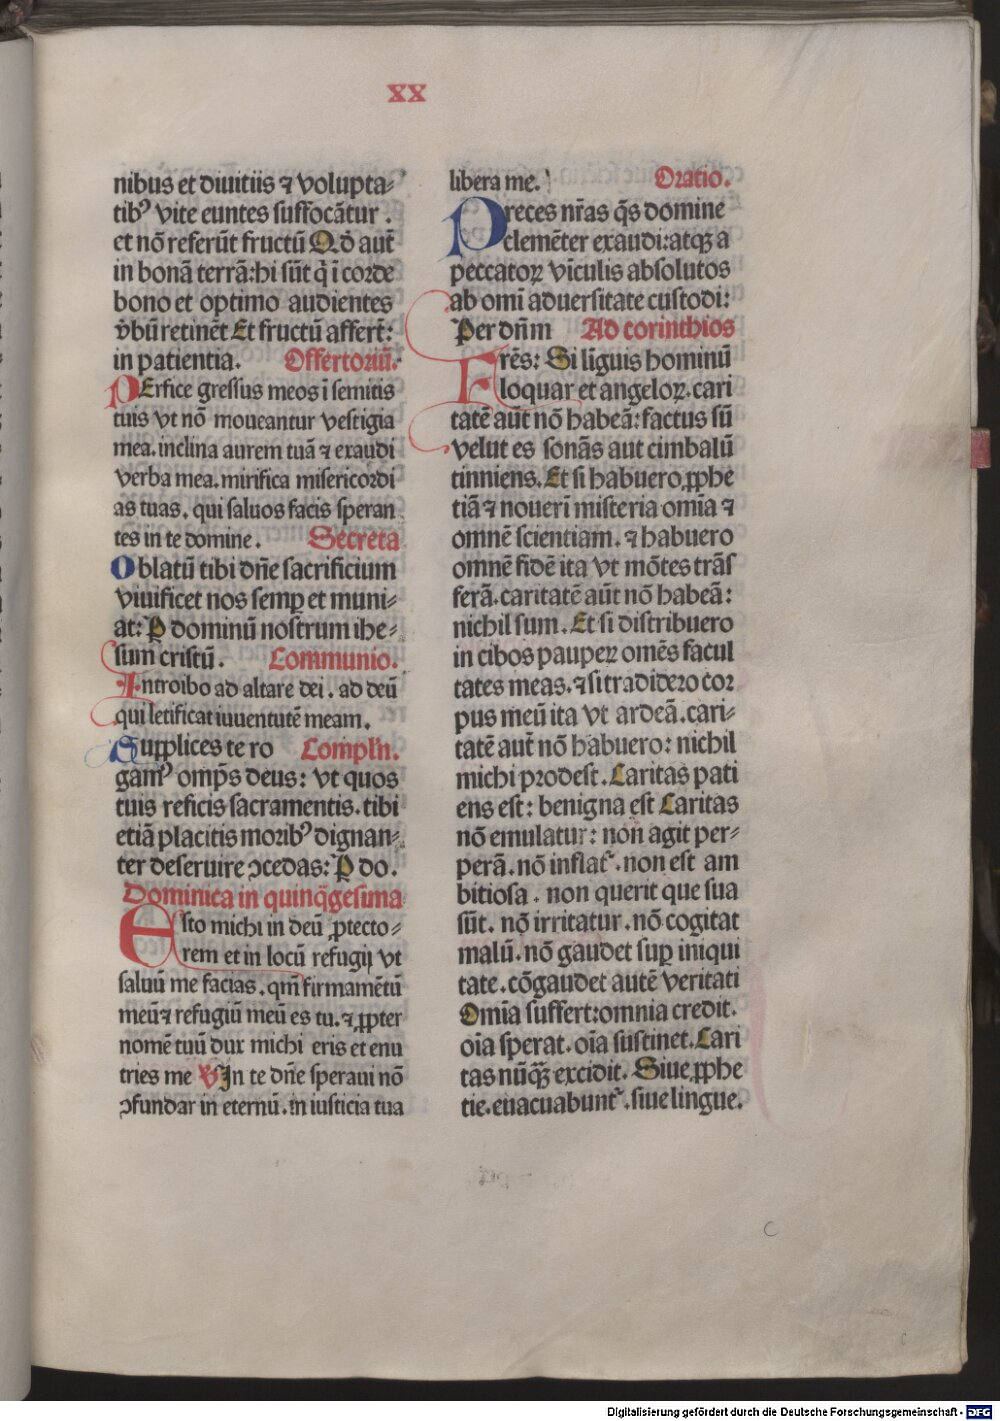 xx
nibus et diuitiis ⁊ volupta⸗
tibꝰ vite euntes suffocātur .
et nō referūt fructū Qđ aut̄
in bonā terrā: hi sūt q̄ ī corde
bono et optimo audientes
v̄bū retinēt Et fructū affert̄:
in patientia. Offertoriū.
PErfice gressus meos ī semitis
tuis vt nō moueantur vestigia
mea. inclina aurem tuā ⁊ exaudi
verba mea. mirifica misericordi
as tuas. qui saluos facis speran
tes in te domine. Secreta
Oblatū tibi dn̄e sacrificium
viuificet nos semꝑ et muni⸗
at: P dominū nostrum ihe⸗
sum cristū. Communio.
Introibo ad altare dei . ad deū
qui letificat iuuentutē meam.
Supplices te ro Compl'n.
gamꝰ omp̄s deus: vt quos
tuis reficis sacramentis. tibi
etiā placitis moribꝰ dignan⸗
ter deseruire ↄcedas: P do.
Dominica in quinq̄gesima
Esto michi in deū ꝓtecto⸗
rem et in locū refugij vt
saluū me facias. qm̄ firmamētū
meū ⁊ refugiū meū es tu. ⁊ ꝓpter
nomē tuū dux michi eris et enu
tries me V In te dn̄e speraui nō
ↄfundar in eternū. in iusticia tua
libera me. Oratio.
Preces nr̄as q̄s domine
clemēter exaudi: atqꝫ a
peccatoꝝ vīculis absolutos
ab omi aduersitate custodi:
Per dn̄m Ad corinthios
Frēs: Si liguis hominū
loquar et angeloꝝ. cari
tatē aūt nō habeā: factus sū
velut es sonās aut cimbalū
tinniens. Et si habuero ꝓphe
tiā ⁊ nouerī misteria omīa ⁊
omnē scientiam. ⁊ habuero
omnē fidē ita vt mōtes trās
ferā. caritatē aūt nō habeā:
nichil sum. Et si distribuero
in cibos pauperꝝ omēs facul
tates meas. ⁊ si tradidero cor
pus meū ita vt ardeā. cari⸗
tatē aut̄ nō habuero: nichil
michi prodest. Caritas pati
ens est: benigna est Caritas
nō emulatur: non agit per⸗
perā. nō inflat᷑. non est am
bitiosa . non querit que sua
sūt. nō irritatur. nō cogitat
malū. nō gaudet suꝑ iniqui
tate. cōgaudet autē veritati
Omīa suffert: omnia credit.
oīa sperat. oīa sustinet. Cari
tas nūqꝫ̄ excidit. Siue ꝓphe
tie. euacuabunt᷑. siue lingue.
c
Digitalisierung gefördert durch die Deutsche Forschungsgemeinschaft - DFG